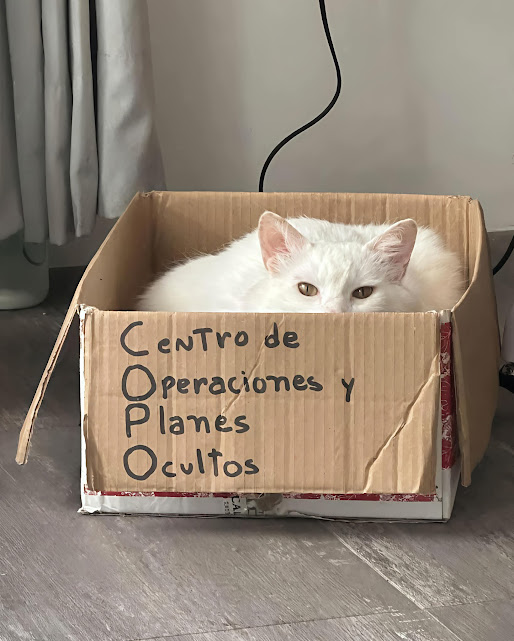 Centro de
Operaciones y
Planes
Ocultos